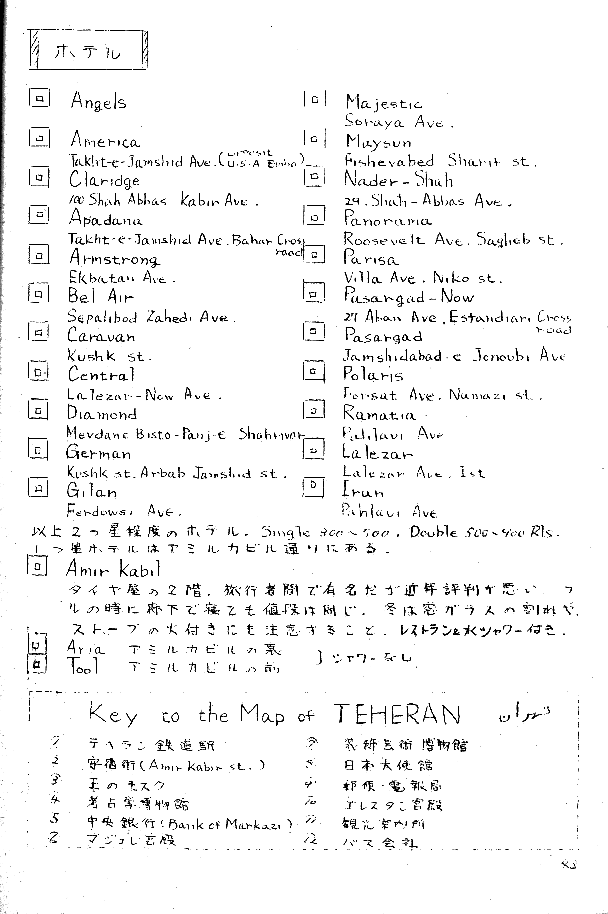 ホテル
Angels
America
Takht-e-Jamshid Ave. (U.S.A
Claridge
100 Shah Abbas Kabir Ave.
Apadana
Takht-e-Jamshid Ave. Bahar Cross road
Armstrong
Ekbatan Ave.
Bel Air
Sepahbod Zahedi Ave.
Caravan
Kushk st.
Central
Lalezar-Now Ave.
Diamond
Meydane Bisto-Panj-E Shahrivar
German
Kushk st. Arbab Jamshid st.
Gilan
Ferdowsi Ave.
Majestic
Soraya Ave.
Maysun
Fishevabed Sharif st.
Nader-Shah
29. Shah-Abbas Ave.
Panorama
Roosevelt Ave. Sagheb st.
Parisa
Villa Ave. Niko st.
Pasargad-Now
27 Aban Ave. Estandiari Cross road
Pasargad
Jamshidabad-e Jonoubi Ave
Polaris
Forsat Ave. Namazi st.
Ramatia
Pahlavi Ave
Lalezar
Lalezar Ave. Ist
Iran
Pahlavi Ave
以上2つ星程度のホテル. Single 300~500, Double 500~900 Rls.
1つ星ホテルはアミルカビル通りにある.
Amir Kabil
タイヤ屋の2階. 旅行者間で有名だが近年評判が悪い. フ
ルの時に廊下で寝ても値段は同じ. 冬は窓ガラスの割れや,
ストーブの火付きにも注意すること. レストラン&水シャワー付き.
Aria アミルカビルの裏
Tool アミルカビルの前
} シャワーなし
Key to the Map of TEHERAN تهران
1 テヘラン鉄道駅
2 安宿街 (Amir Kabir st.)
3 王のモスク
4 考古学博物館
5 中央銀行 (Bank of Markazi)
6 宮殿
7 装飾芸術博物館
8 日本大使館
9 郵便・電報局
10 ゴレスタン宮殿
11 観光案内所
12 バス会社